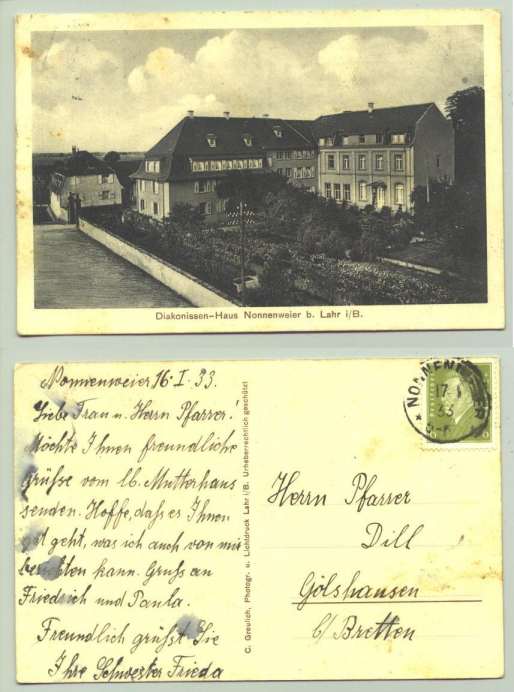 Diakonissen-Haus Nonnenweier b. Lahr i/B.
Nonnenweier 16.I.33.
Liebe Frau u. Herrn Pfarrer!
Möchte Ihnen freundliche
grüsse vom lb. Mutterhaus
senden. Hoffe, daß es Ihnen
gut geht, was ich auch von mir
berichten kann. Gruss an
Friedrich und Paula.
Freundlich grüßt Sie
Ihre Schwester Frieda
C. Greulich, Photogr. u. Lichtdruck Lahr i/B. Urheberrechtlich geschützt
17 1
33
Herrn Pfarrer
Dill
Gölshausen
b/ Bretten